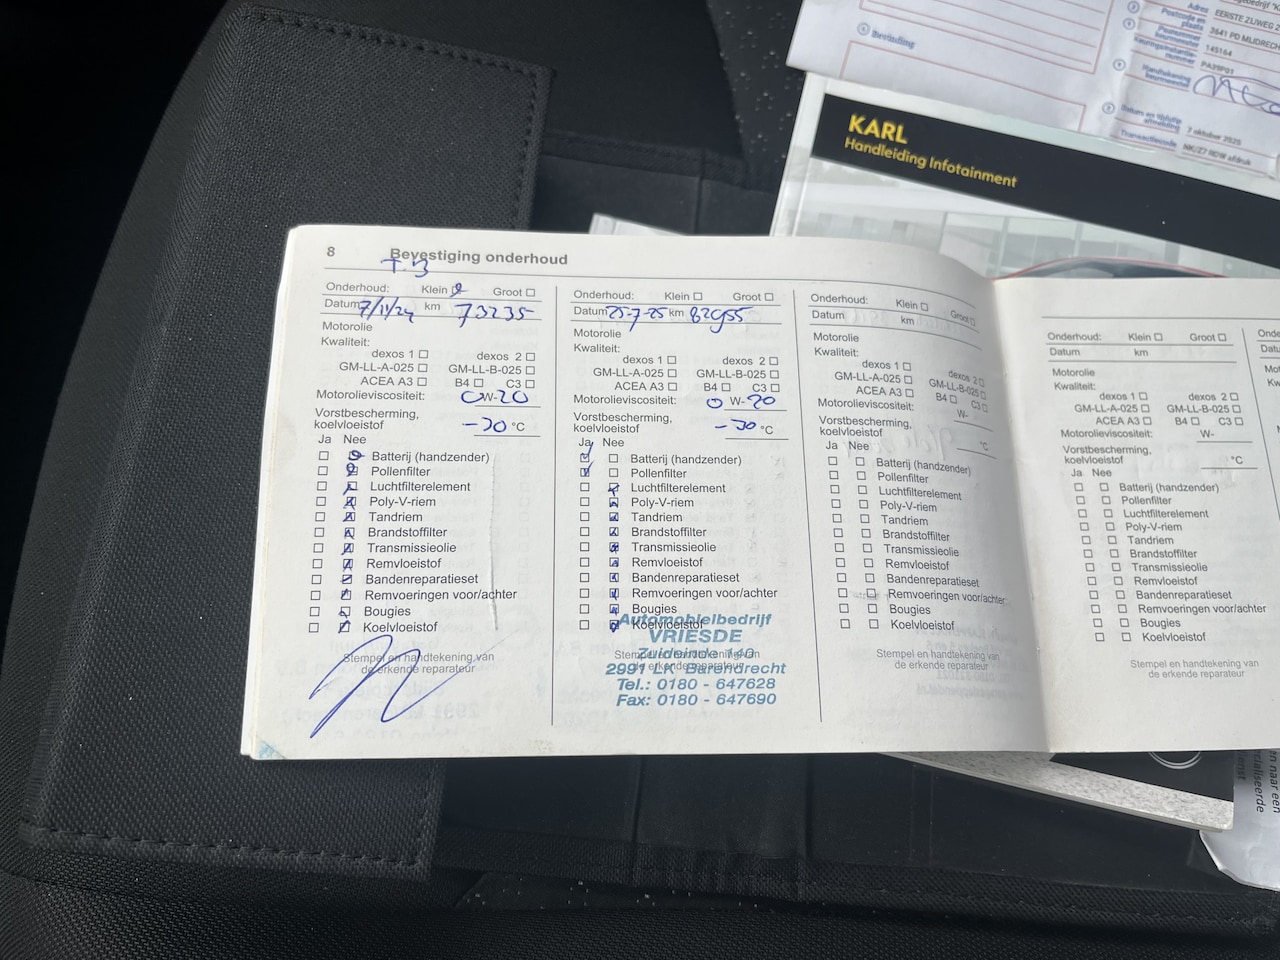 Bevinding
Adres
EERSTE ZIJWEG 2
Postcode en plaats
3641 PD MIJDRECH
145164
PA39P01
Handtekening keurmeester
7 oktober 2025
Transactiecode
KARL
Handleiding Infotainment
8
Bevestiging onderhoud
T.B
Onderhoud: Klein Groot
Datum 7/11/24 km 73235
Motorolie
Kwaliteit:
dexos 1 dexos 2
GM-LL-A-025 GM-LL-B-025
ACEA A3 B4 C3
Motorolieviscositeit: 0W-20
Vorstbescherming,
koelvloeistof -30 °C
Ja Nee
Batterij (handzender)
Pollenfilter
Luchtfilterelement
Poly-V-riem
Tandriem
Brandstoffilter
Transmissieolie
Remvloeistof
Bandenreparatieset
Remvoeringen voor/achter
Bougies
Koelvloeistof
Stempel en handtekening van
de erkende reparateur
Onderhoud: Klein Groot
Datum 25-7-25 km 82955
Motorolie
Kwaliteit:
dexos 1 dexos 2
GM-LL-A-025 GM-LL-B-025
ACEA A3 B4 C3
Motorolieviscositeit: 0 W-20
Vorstbescherming,
koelvloeistof -30 °C
Ja Nee
Batterij (handzender)
Pollenfilter
Luchtfilterelement
Poly-V-riem
Tandriem
Brandstoffilter
Transmissieolie
Remvloeistof
Bandenreparatieset
Remvoeringen voor/achter
Bougies
Koelvloeistof
Stempel en handtekening van
de erkende reparateur
Automobielbedrijf
VRIESDE
Zuideinde 140
2991 LK Barendrecht
Tel.: 0180 - 647628
Fax: 0180 - 647690
Onderhoud: Klein Groot
Datum km
Motorolie
Kwaliteit:
dexos 1 dexos 2
GM-LL-A-025 GM-LL-B-025
ACEA A3 B4 C3
Motorolieviscositeit: W-
Vorstbescherming,
koelvloeistof °C
Ja Nee
Batterij (handzender)
Pollenfilter
Luchtfilterelement
Poly-V-riem
Tandriem
Brandstoffilter
Transmissieolie
Remvloeistof
Bandenreparatieset
Remvoeringen voor/achter
Bougies
Koelvloeistof
Stempel en handtekening van
de erkende reparateur
Onderhoud: Klein Groot
Datum km
Motorolie
Kwaliteit:
dexos 1 dexos 2
GM-LL-A-025 GM-LL-B-025
ACEA A3 B4 C3
Motorolieviscositeit: W-
Vorstbescherming,
koelvloeistof °C
Ja Nee
Batterij (handzender)
Pollenfilter
Luchtfilterelement
Poly-V-riem
Tandriem
Brandstoffilter
Transmissieolie
Remvloeistof
Bandenreparatieset
Remvoeringen voor/achter
Bougies
Koelvloeistof
Stempel en handtekening van
de erkende reparateur
n naar een